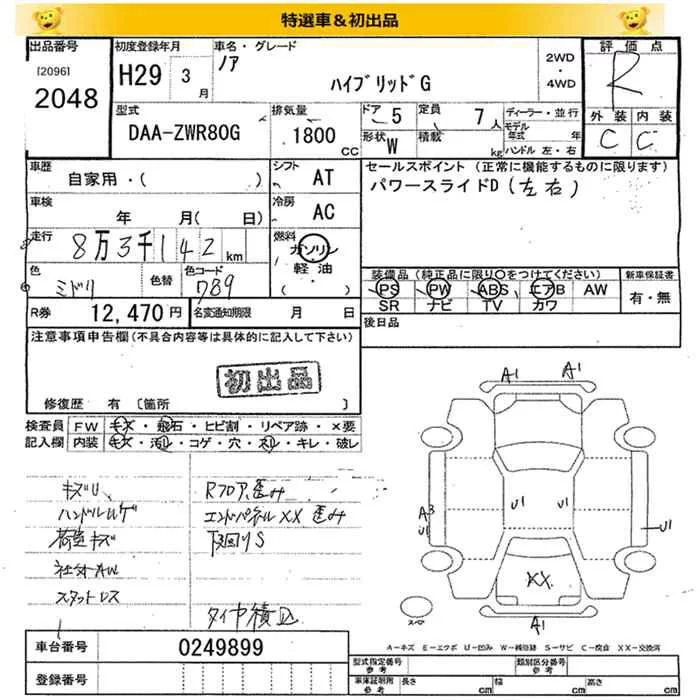 特選車＆初出品
出品番号
[2096]
2048
初度登録年月
H29 3 月
車名・グレード
ノア
ハイブリッドG
2WD
・
4WD
評価点
R
外装 内装
C C
型式
DAA-ZWR80G
排気量
1800 CC
ドア 5
定員 7 人
形状 W
積載 kg
ディーラー・並行
モデル年式 年
ハンドル 左・右
車歴
自家用・( )
シフト AT
車検
年 月( 日)
冷房 AC
走行
8万3千142 km
燃料
ガソリン
軽油
( ・ )
色
ミドリ
色替
色コード
789
R券 12,470円
名変通知期限 月 日
セールスポイント (正常に機能するものに限ります)
パワースライドD (左右)
装備品 (純正品に限り○をつけてください)
PS PW ABS エアB AW
SR ナビ TV カワ
新車保証書
有・無
後日品
注意事項申告欄(不具合内容等は具体的に記入して下さい)
初出品
修復歴 有 〔箇所 〕
検査員記入欄
FW キズ・飛石・ヒビ割・リペア跡・×要
内装 キズ・汚レ・コゲ・穴・スレ・キレ・破レ
キズU
ハンドルハゲ
荷室キズ
社外AW
スタットレス
Rフロア歪み
エンドパネルXX 歪み
下回りS
タイヤ積込
A1 A1
A3
U1
U1 U1
U1
XX
A1
スペア
車台番号 0249899
登録番号
A－キズ E－エクボ U－凹み W－補修跡 S－サビ C－腐食 XX－交換済
型式指定番号 参考
類別区分番号 参考
車庫証明用 参考
長さ cm 幅 cm 高さ cm